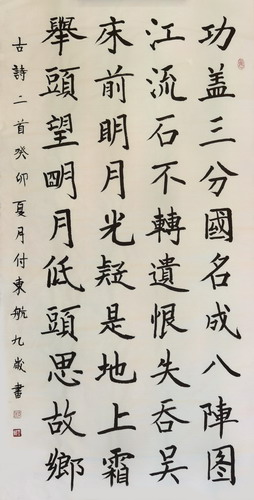 功盖三分國名成八陣图
江流石不轉遺恨失吞吴
床前明月光疑是地上霜
舉頭望明月低頭思故鄉
古詩二首癸卯夏月付東航九歲書